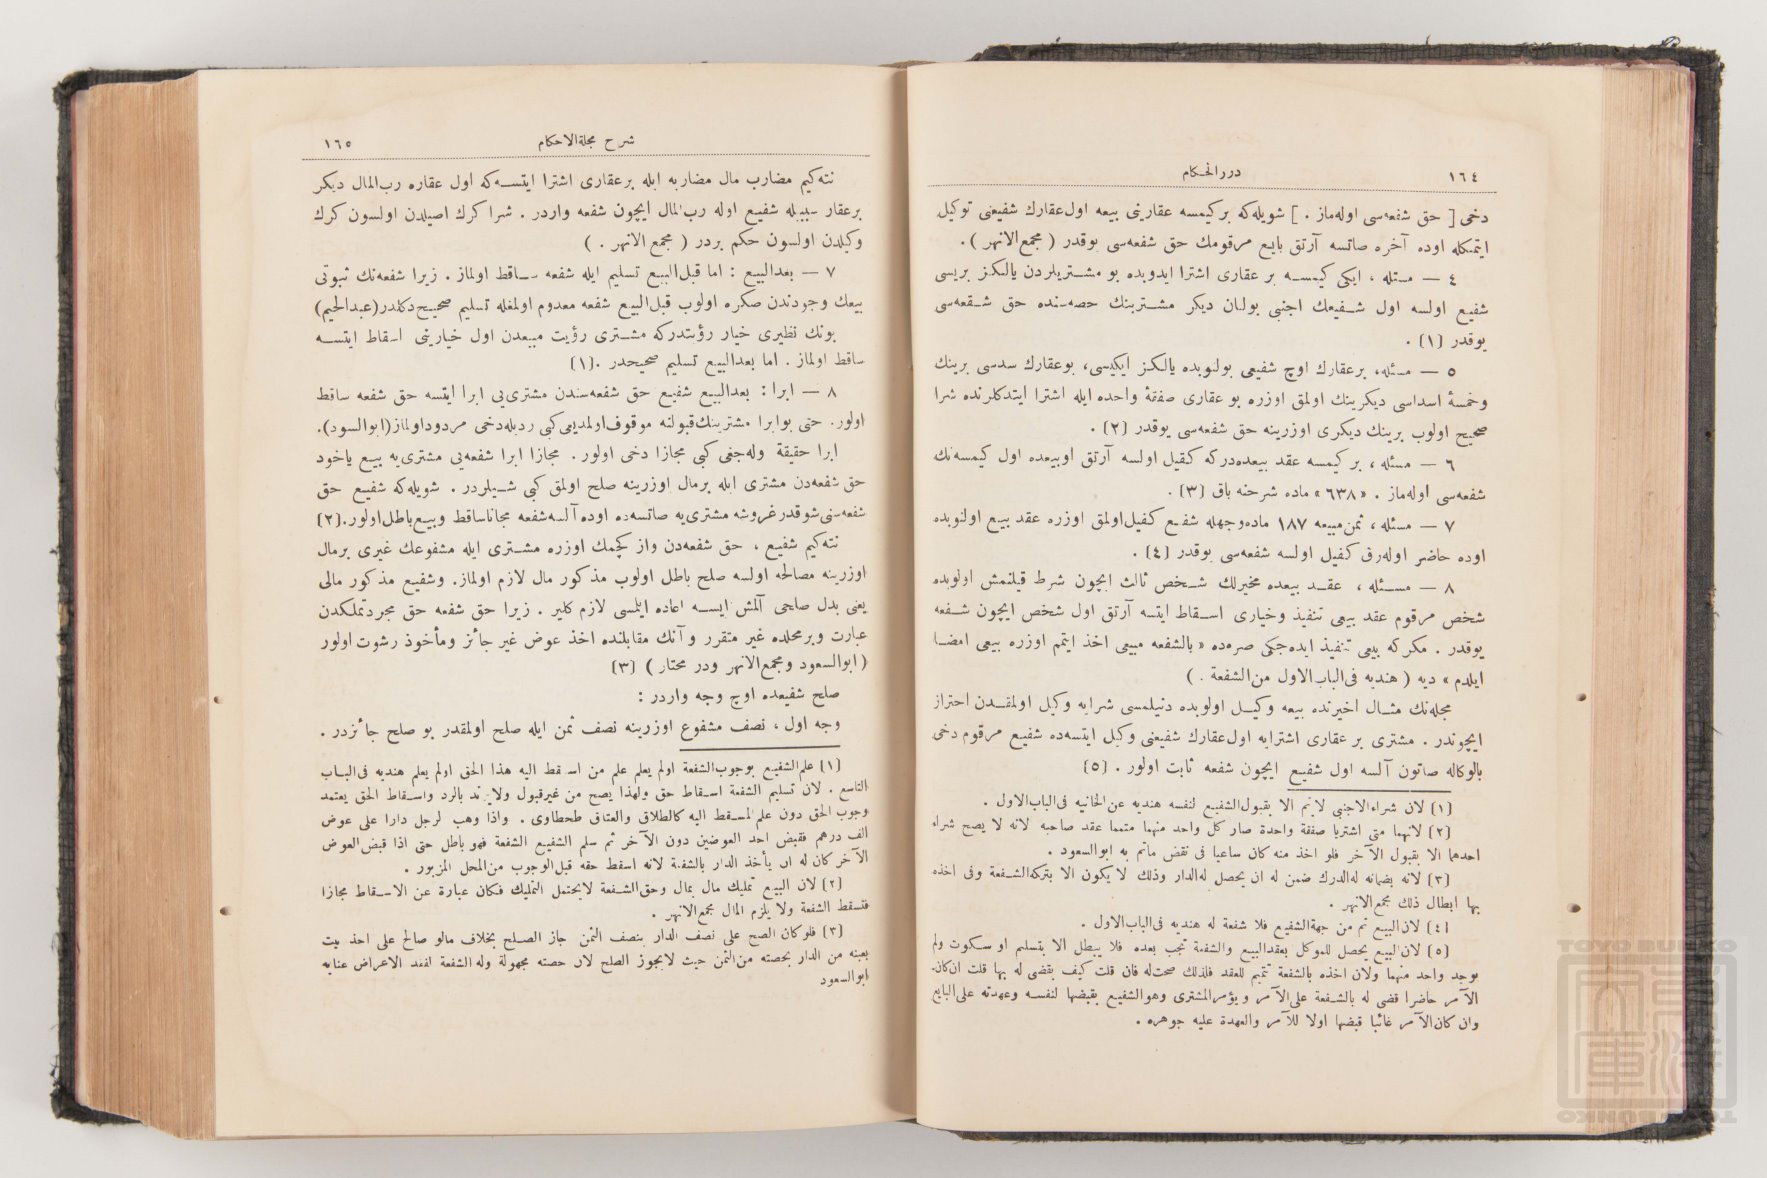 ١٦٤
دررالحكام
دخى [ حق شفعه‌سى اوله‌ماز . ] شويله‌كه بركيمسه عقارينى بيعه اول‌عقارك شفيعنى توكيل
ايتمكله اوده آخره صاتسه آرتق بايع مرقومك حق شفعه‌سى يوقدر ( مجمع‌الانهر ) .
٤ — مسئله ، ايكى كيمسه بر عقارى اشترا ايدوبده بو مشتريلردن يالكز بريسى
شفيع اولسه اول شفيعك اجنبى بولنان ديكر مشترينك حصه‌سنده حق شفعه‌سى
يوقدر (١) .
٥ — مسئله، برعقارك اوچ شفيعى بولنوبده يالكز ايكيسى، بوعقارك سدسى برينك
وخمسهٔ اسداسى ديكرينك اولمق اوزره بو عقارى صفقهٔ واحده ايله اشترا ايتدكلرنده شرا
صحيح اولوب برينك ديكرى اوزرينه حق شفعه‌سى يوقدر (٢) .
٦ — مسئله ، بر كيمسه عقد بيعده‌دركه كفيل اولسه آرتق اوبيعده اول كيمسه‌نك
شفعه‌سى اوله‌ماز . «٦٣٨» ماده شرحنه باق (٣) .
٧ — مسئله ، ثمن‌مبيعه ١٨٧ ماده‌وجهله شفيع كفيل‌اولمق اوزره عقد بيع اولنوبده
اوده حاضر اوله‌رق كفيل اولسه شفعه‌سى يوقدر (٤) .
٨ — مسئله ، عقد بيعده مخيرلك شخص ثالث ايچون شرط قيلنمش اولوبده
شخص مرقوم عقد بيعى تنفيذ وخيارى اسقاط ايتسه آرتق اول شخص ايچون شفعه
يوقدر . مكركه بيعى تنفيذ ايده‌جكى صره‌ده « بالشفعه مبيعى اخذ ايتمم اوزره بيعى امضا
ايلدم » ديه ( هنديه فى‌الباب‌الاول من‌الشفعة . )
مجله‌نك مثال اخيرنده بيعه وكيل اولوبده دنيلمسى شرايه وكيل اولمقدن احتراز
ايچوندر . مشترى بر عقارى اشترايه اول‌عقارك شفيعنى وكيل ايتسه‌ده شفيع مرقوم دخى
بالوكاله صاتون آلسه اول شفيع ايچون شفعه ثابت اولور . (٥)
(١) لان شراءالاجنبى لايتم الا بقبول‌الشفيع لنفسه هنديه عن‌الخانيه فى‌الباب‌الاول .
(٢) لانهما متى اشتريا صفقة واحدة صار كل واحد منهما متمما عقد صاحبه لانه لا يصح شراء
احدهما الا بقبول الآخر فلو اخذ منه كان ساعيا فى نقض ماتم به ابوالسعود .
(٣) لانه بضمانه له‌الدرك ضمن له ان يحصل له‌الدار وذلك لا يكون الا بتركه‌الشفعة وفى اخذه
بها ابطال ذلك مجمع‌الانهر .
(٤) لان‌البيع تم من جهةالشفيع فلا شفعة له هنديه فى‌الباب‌الاول .
(٥) لان‌البيع يحصل للموكل بعقدالبيع والشفعة تجب بعده فلا يبطل الا بتسليم او سكوت ولم
يوجد واحد منهما ولان اخذه بالشفعة تتميم للعقد فلذلك صحت‌له فان قلت كيف يقضى له بها قلت ان‌كان
الآمر حاضرا قضى له بالشفعة على‌الآمر ويؤمرالمشترى وهوالشفيع بقبضها لنفسه وعهدته على‌البايع
وان كان‌الآمر غائبا قبضها اولا للآمر والعهدة عليه جوهره .
شرح مجلةالاحكام
١٦٥
نته‌كيم مضارب مال مضاربه ايله برعقارى اشترا ايتسه‌كه اول عقاره رب‌المال ديكر
برعقار سببيله شفيع اوله رب‌المال ايچون شفعه واردر . شرا كرك اصيلدن اولسون كرك
وكيلدن اولسون حكم بردر ( مجمع الانهر . )
٧ — بعدالبيع : اما قبل‌البيع تسليم ايله شفعه ساقط اولماز . زيرا شفعه‌نك ثبوتى
بيعك وجودندن صكره اولوب قبل‌البيع شفعه معدوم اولمغله تسليم صحيح‌دكلدر(عبدالحليم)
بونك نظيرى خيار رؤيتدركه مشترى رؤيت مبيعدن اول خيارينى اسقاط ايتسه
ساقط اولماز . اما بعدالبيع تسليم صحيحدر .(١)
٨ — ابرا : بعدالبيع شفيع حق شفعه‌سندن مشترى‌يى ابرا ايتسه حق شفعه ساقط
اولور. حتى بوابرا مشترينك‌قبولنه موقوف‌اولمديغى‌كبى رديله‌دخى مردوداولماز(ابوالسود).
ابرا حقيقة وله‌جغى كبى مجازا دخى اولور . مجازا ابرا شفعه‌يى مشترى‌يه بيع ياخود
حق شفعه‌دن مشترى ايله برمال اوزرينه صلح اولمق كبى شيلردر . شويله‌كه شفيع حق
شفعه‌سنى شوقدرغروشه مشترى‌يه صاتسه‌ده اوده آلسه‌شفعه مجاناساقط وبيع‌باطل‌اولور.(٢)
نته‌كيم شفيع ، حق شفعه‌دن واز كچمك اوزره مشترى ايله مشفوعك غيرى برمال
اوزرينه مصالحه اولسه صلح باطل اولوب مذكور مال لازم اولماز. وشفيع مذكور مالى
يعنى بدل صلحى آلمش ايسه اعاده ايتمسى لازم كلير . زيرا حق شفعه حق مجردتملكدن
عبارت وبرمحلده غير متقرر وآنك مقابلنده اخذ عوض غير جائز ومأخوذ رشوت اولور
( ابوالسعود ومجمع‌الانهر ودر مختار ) (٣)
صلح شفيعده اوچ وجه واردر :
وجه اول ، نصف مشفوع اوزرينه نصف ثمن ايله صلح اولمقدر بو صلح جائزدر .
(١) علم‌الشفيع بوجوب‌الشفعة اولم يعلم علم من اسقط اليه هذا الحق اولم يعلم هنديه فى‌الباب
التاسع . لان تسليم الشفعة اسقاط حق ولهذا يصح من غيرقبول ولايرتد بالرد واسقاط الحق يعتمد
وجوب‌الحق دون علم‌المسقط اليه كالطلاق والعتاق طحطاوى . واذا وهب لرجل دارا على عوض
الف درهم فقبض احد العوضين دون الآخر ثم سلم الشفيع الشفعة فهو باطل حتى اذا قبض‌العوض
الآخر كان له ان يأخذ الدار بالشفعة لانه اسقط حقه قبل‌الوجوب من‌المحل المزبور .
(٢) لان البيع تمليك مال بمال وحق‌الشفعة لايحتمل التمليك فكان عبارة عن الاسقاط مجازا
فتسقط الشفعة ولا يلزم المال مجمع‌الانهر .
(٣) فلوكان الصح على نصف الدار بنصف الثمن جاز الصلح بخلاف مالو صالح على اخذ بيت
بعينه من الدار بحصته من‌الثمن حيث لايجوز الصلح لان حصته مجهولة وله الشفعة لفقد الاعراض عنايه
ابوالسعود
TOYO BUNKO